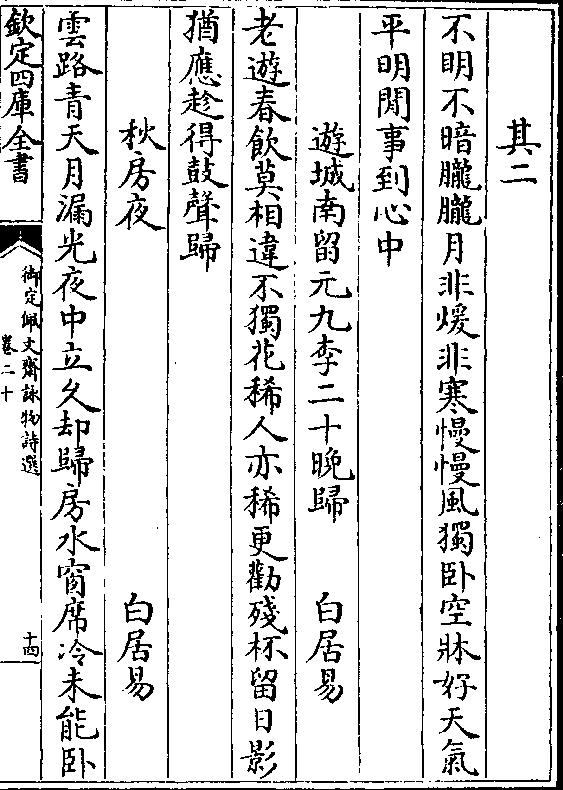 其二
不明不暗朧朧月非煖非寒慢慢風獨卧空牀好天氣
平明閒事到心中
遊城南留元九李二十晚歸 白居易
老遊春飲莫相違不獨花稀人亦稀更勸殘杯留日影
猶應趁得鼓聲歸
秋房夜 白居易
雲路青天月漏光夜中立久却歸房水窗席冷未能卧
欽定四庫全書
御定佩文齋詠物詩選
卷二十
十四